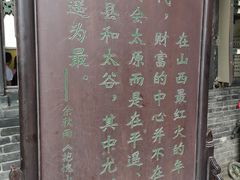 在山西最红火的年
代，财富的中心并不在
省会太原而是在平遥、
县和太谷，其中尤
遥为最。
——余秋雨《抱愧